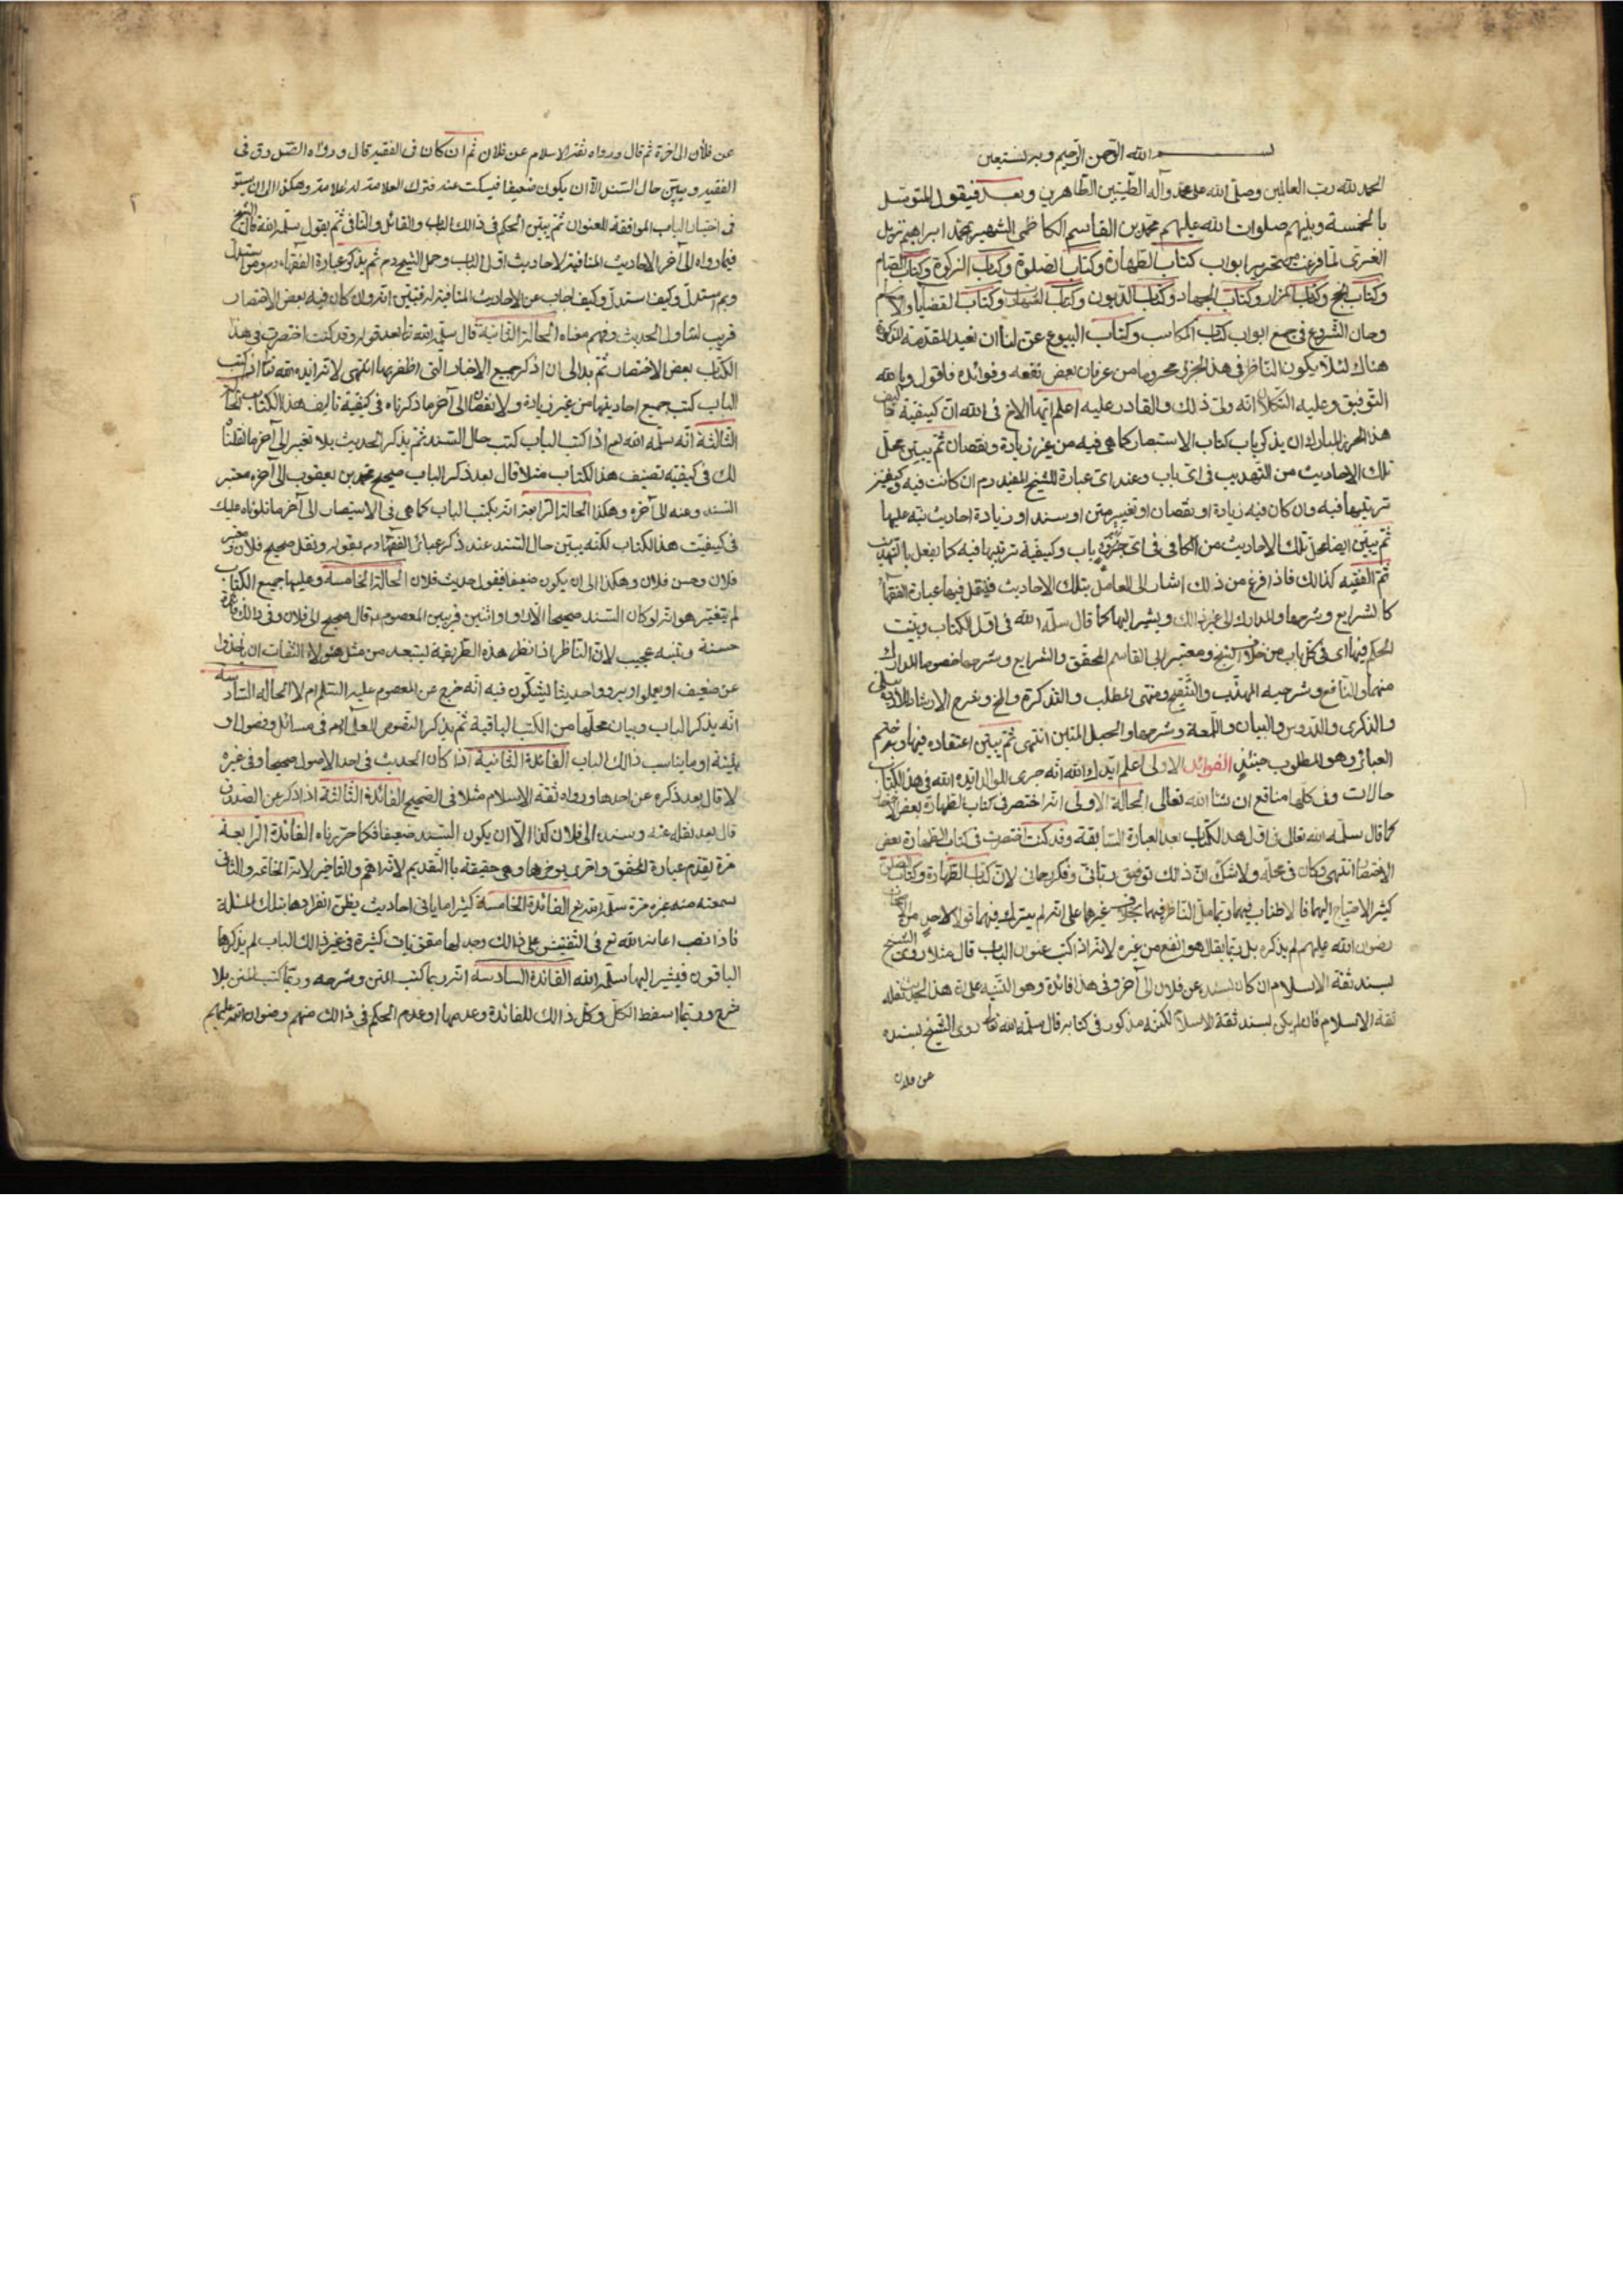 بسم الله الرحمن الرحيم وبه نستعين
الحمد لله رب العالمين وصلى الله على محمد وآله الطيبين الطاهرين وبعد فيقول المتوسل
بالخمسة وبنيهم صلوات الله عليهم محمد بن القاسم الكاظمي الشهير بمحمد ابراهيم نزيل
الغري لما فرغت من تحرير ابواب كتاب الطهارة وكتاب الصلوة وكتاب الزكوة وكتاب الصيام
وكتاب الحج وكتاب المزار وكتاب الجهاد وكتاب الديون وكتاب الشهادات وكتاب القضايا والاحكام
وحان الشروع في جمع ابواب كتاب المكاسب وكتاب البيوع عن لنا ان نعيد المقدمة المذكورة
هناك لئلا يكون الناظر في هذا الجزئ محروما من عرفان بعض نفعه وفوائده فاقول وبالله
التوفيق وعليه التكلان انه ولي ذلك والقادر عليه اعلم ايها الاخ في الله ان كيفية تاليف
هذا الجزئ المبارك ان يذكر باب كتاب الاستبصار كما هي فيه من غير زيادة ونقصان ثم يبين محل
تلك الاحاديث من التهذيب في اي باب وعند اي عبارة للشيخ المفيد رم ان كانت فيه وكيفية
ترتيبها فيه وان كان فيه زيادة او نقصان او تغيير متن او سند او زيادة احاديث نبه عليها
ثم يبين ايضا محل تلك الاحاديث من الكافي في اي جزئ وباب وكيفية ترتيبها فيه كما يفعل بالتهذيب
ثم الفقيه كذالك فاذا فرغ من ذلك اشار الى العامل بتلك الاحاديث فينقل فيها عبارة الفقهاء
كالشرايع وشرحها والمدارك الى غير ذالك ويشير اليها كما قال سلمه الله في اول الكتاب وبينت
الحكم فيها اي في كل باب من خلاف الشيخ ومعتبر ابي القاسم المحقق والشرايع وشرحها خصوصا المدارك
منهما والنافع وشرحيه المهذب والتنقيح ومنتهى المطلب والتذكرة والمخ وشرح الارشاد للاردبيلي
والذكرى والدروس والبيان واللمعة وشرحها والحبل المتين انتهى ثم يبين اعتقاده فيها وبه ختم
العبائر وهو المطلوب حينئذ الفوائد الاولى اعلم ايدك الله انه جرى للمولى ايده الله في هذا الكتاب
حالات وفي كلها منافع ان شاء الله تعالى الحالة الاولى انه اختصر في كتاب الطهارة بعض الاختصار
كما قال سلمه الله تعالى في اول هذا الكتاب بعد العبارة السابقة وقد كنت اختصرت في كتاب الطهارة بعض
الاختصار انتهى وكان في محله ولا شك ان ذلك توفيق رباني وفكر رحماني لان كتاب الطهارة وكتاب الصلوة
كثير الاحتياج اليهما فالاطناب فيهما وتامل الناظر فيهما بخلاف غيرها على انه لم يترك فيهما قولا لاحد من الاصحاب
رضوان الله عليهم لم يذكره بل ربما يقال هو انفع من غيره لانه اذا كتب عنوان الباب قال مثلا روى الشيخ
بسند ثقة الاسلام ان كان بسنده عن فلان الى آخره وفي هذا فائدة وهو التنبيه على ان هذا الحديث نقله
ثقة الاسلام فان لم يكن بسند ثقة الاسلام لكنه مذكور في كتابه قال سلمه الله تعالى روى الشيخ بسنده
عن فلان
عن فلان الى آخره ثم قال ورواه ثقة الاسلام عن فلان ثم ان كان في الفقيه قال ورواه الصدوق في
الفقيه ويبين حال السند الا ان يكون ضعيفا فيسكت عنه فترك العلامة له علامة وهكذا الى ان يستوفي
في اخبار الباب الموافقة للعنوان ثم يبين الحكم في ذالك الباب والقائل والنافي ثم يقول سلمه الله قال الشيخ
فيما رواه الى آخر الاحاديث المنافية لاحاديث اول الباب وحمل الشيخ رم ثم يذكر عبارة الفقهاء ومن استدل
وبم استدل وكيف استدل وكيف اجاب عن الاحاديث المنافية له فتبين انه وان كان فيه بعض الاختصار
قريب لتناول الحديث وفهم معناه الحالة الثانية قال سلمه الله تعالى بعد قوله وقد كنت اختصرت في هذا
الكتاب بعض الاختصار ثم بدا لي ان اذكر جميع الاخبار التي اظفر بها انتهى لانه ايده الله تعالى اذا كتب
الباب كتب جميع احاديثها من غير زيادة ولا نقصان الى آخر ما ذكرناه في كيفية تاليف هذا الكتاب الحالة
الثالثة انه سلمه الله تع اذا كتب الباب كتب حال السند ثم يذكر الحديث بلا تغيير الى آخر ما نقلناه
لك في كيفية تصنيف هذا الكتاب مثلا قال بعد ذكر الباب صحيح محمد بن يعقوب الى آخره معتبر
السند وعنه الى آخره وهكذا الحالة الرابعة انه يكتب الباب كما هي في الاستبصار الى آخر ما تلوناه عليك
في كيفيت هذا الكتاب لكنه يبين حال السند عند ذكر عبائر الفقهاء رم بقوله ونقل صحيح فلان ومعتبر
فلان وحسن فلان وهكذا الى ان يكون ضعيفا فيقول حديث فلان الحالة الخامسة وعليها جميع الكتاب
لم يتغير هو انه لو كان السند صحيحا الا راو او اثنين قريبين المعصوم ع قال صحيح الى فلان وفي ذالك فائدة
حسنة وتنبه عجيب لان الناظر اذا نظر هذه الطريقة ليتبعد من مثل هؤلاء الثقات ان ياخذوا
عن ضعيف او يعملوا او يرووا حديثا ليشكون فيه انه خرج عن المعصوم عليه السلام ام لا الحالة السادسة
انه يذكر الباب وبيان محلها من الكتب الباقية ثم يذكر النصوص للعلماء رم في مسائل وفصول او
تتمة او ما يناسب ذالك الباب الفائدة الثانية اذا كان الحديث في احد الاصول صحيحا وفي غيره
لا قال بعد ذكره عن احدها ورواه ثقة الاسلام مثلا في الصحيح الفائدة الثالثة اذا ذكر عن الصدوق
قال بعد نقله عنه وسنده الى فلان كذا الا ان يكون السند ضعيفا فكما حررناه الفائدة الرابعة
مرة يقدم عبارة المحقق واخرى يوخرها وهي حقيقة بالتقديم لانه اهم والتاخير لانه الخاتمة والثاني
سمعته منه غير مرة سلمه الله تع الفائدة الخامسة كثيرا ما ياتي احاديث يظن انفرادها بتلك المسئلة
فاذا نصب اعانه الله تع في التفتيش على ذالك وجد لها مقويات كثيرة في غير ذالك الباب لم يذكرها
الباقون فيشير اليها سلمه الله الفائدة السادسة انه ربما كتب المتن وشرحه وربما كتب المتن بلا
شرح وربما اسقط الكل وكل ذالك للفائدة وعدمها او عدم الحكم في ذالك منهم رضوان الله عليهم